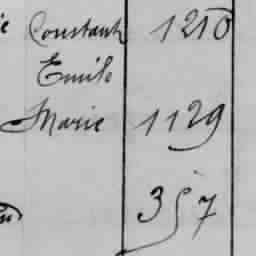 Constant 1210
Emile
Marie 1129
357